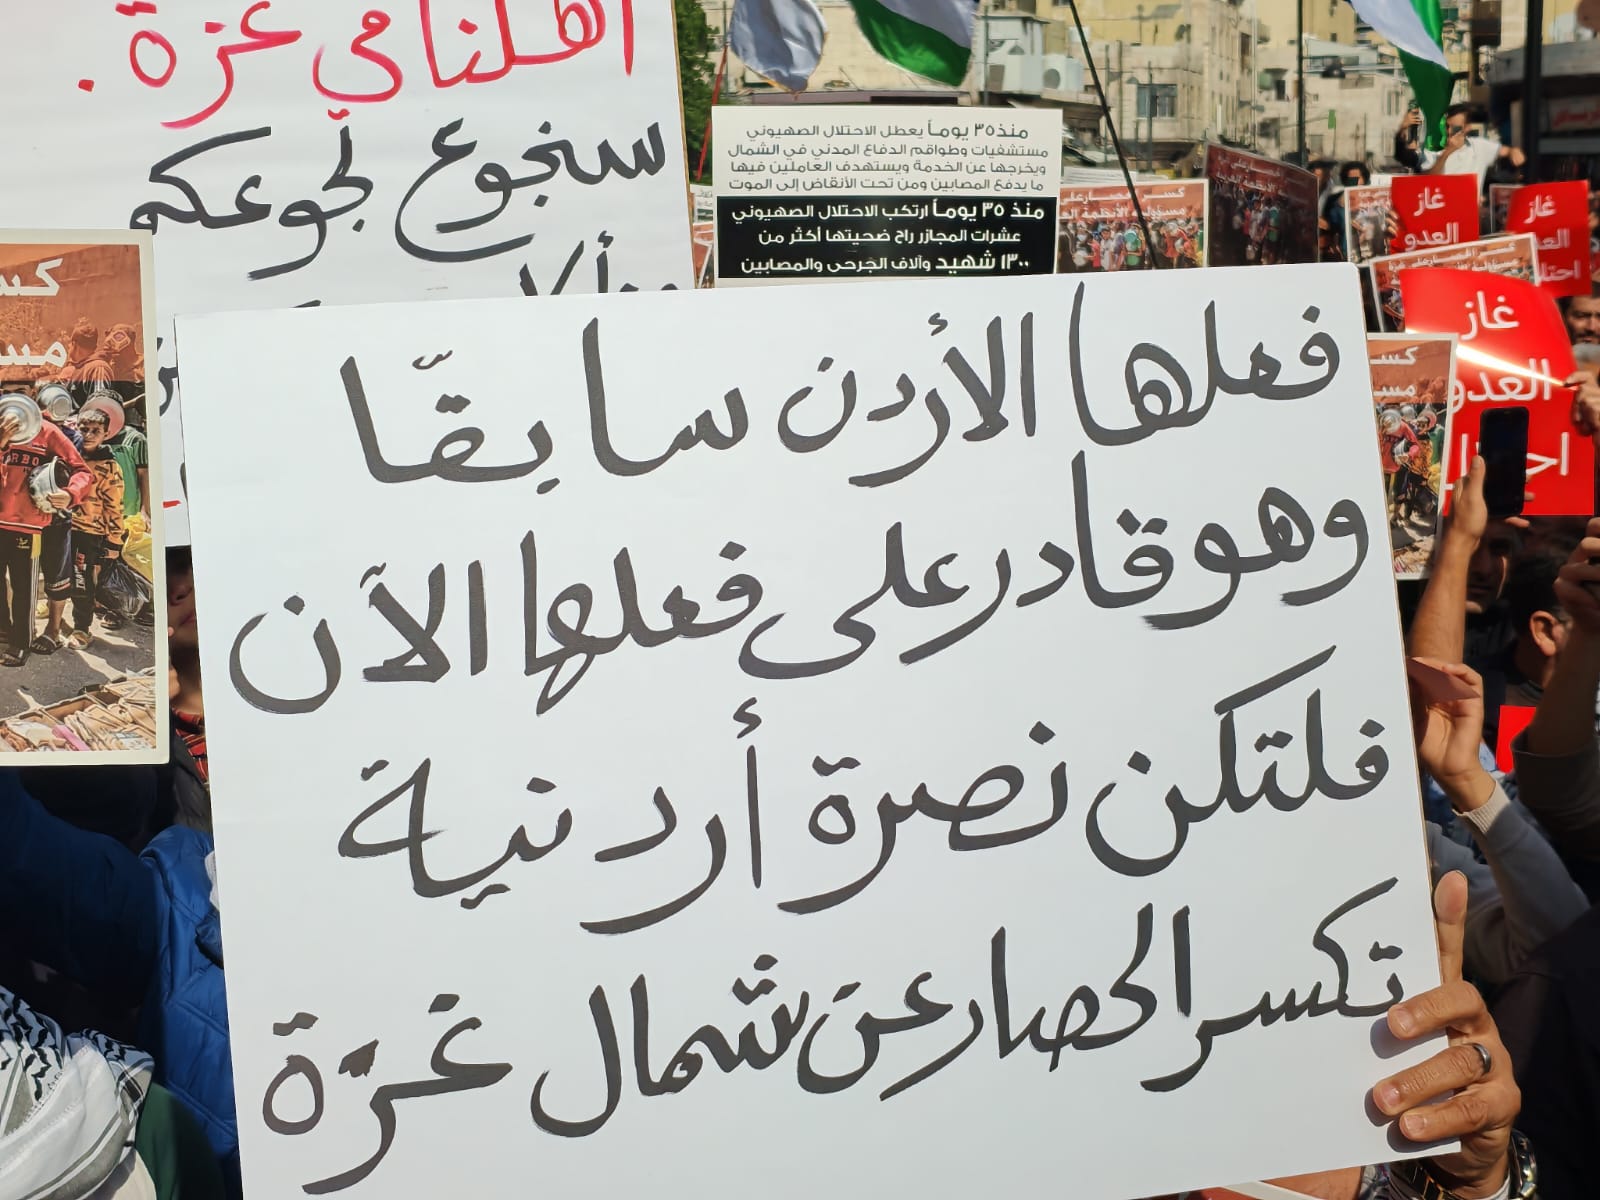 أهلنا في غزة.
سنجوع لجوعكم
منذ ٣٥ يوماً يعطل الاحتلال الصهيوني
مستشفيات وطواقم الدفاع المدني في الشمال
ويخرجها عن الخدمة ويستهدف العاملين فيها
ما يدفع المصابين ومن تحت الأنقاض إلى الموت
منذ ٣٥ يوماً ارتكب الاحتلال الصهيوني
عشرات المجازر راح ضحيتها أكثر من
١٣٠٠ شهيد وآلاف الجرحى والمصابين
فعلها الأردن سابقًا
وهو قادر على فعلها الآن
فلتكن نصرة أردنية
تكسر الحصار عن شمال غزّة
غاز
العدو
غاز
العدو
غاز
العدو